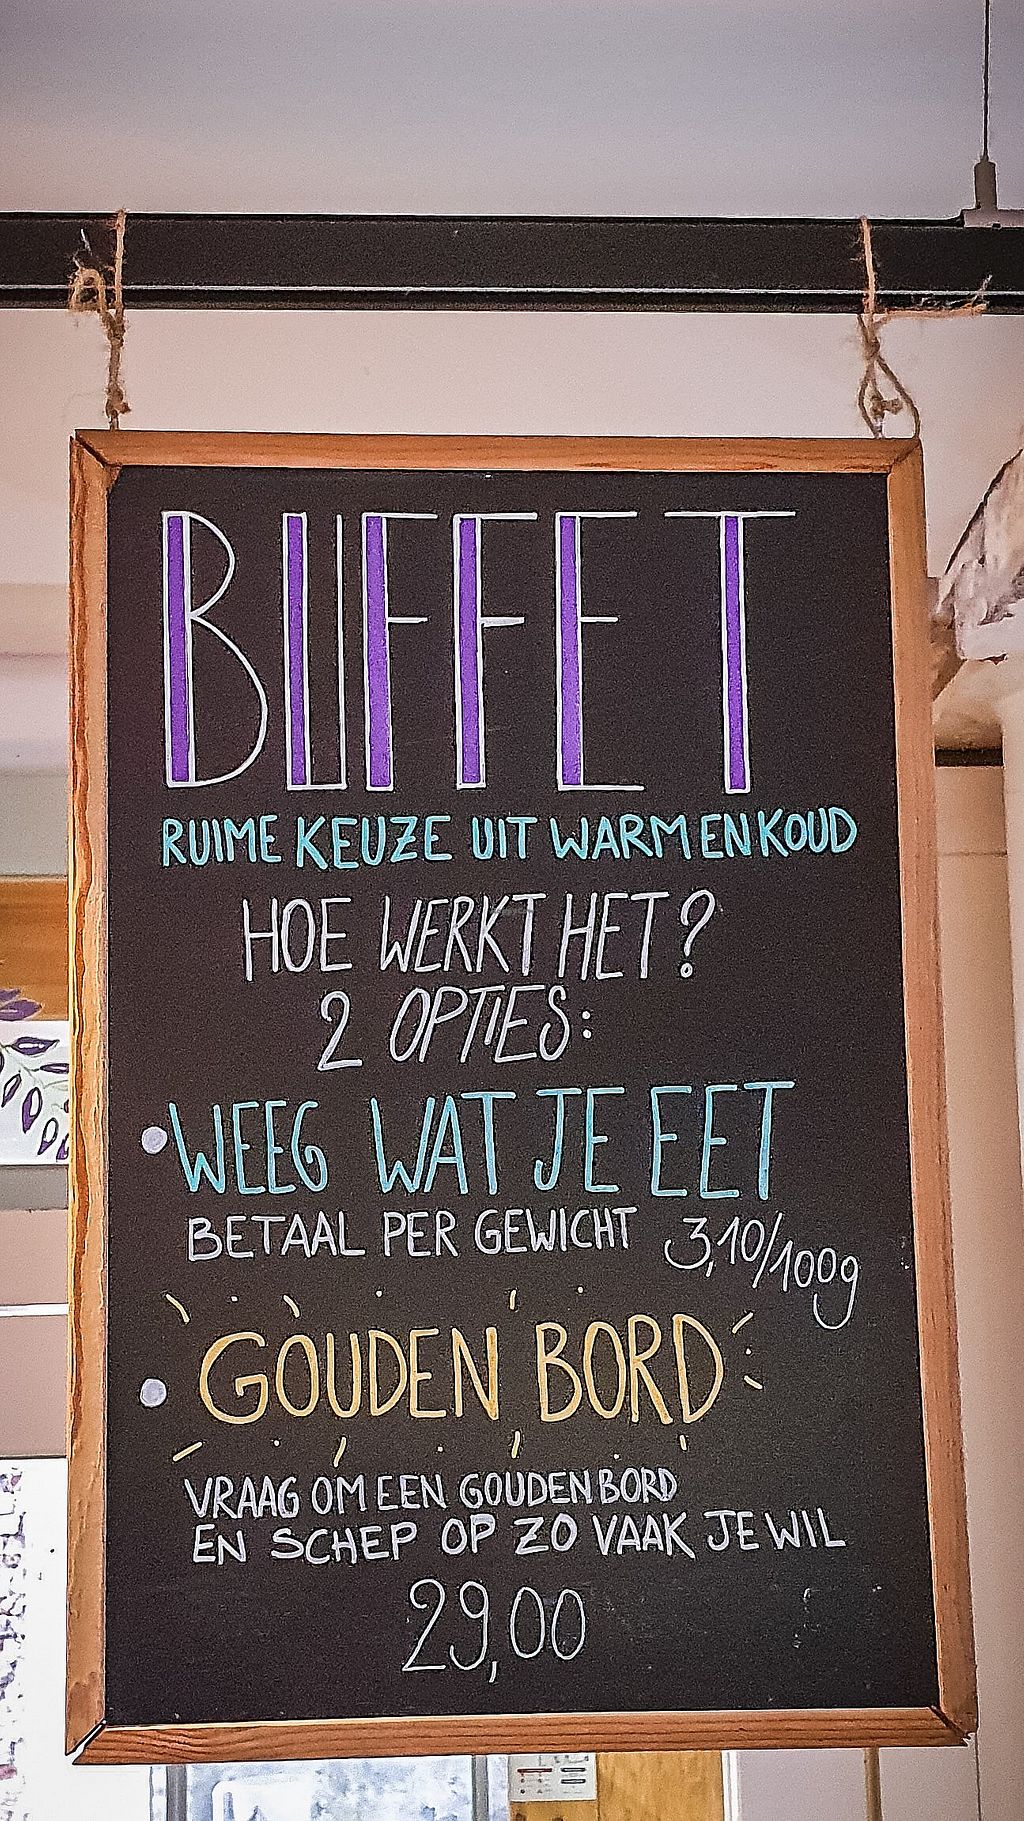 BUFFET
RUIME KEUZE UIT WARM EN KOUD
HOE WERKT HET?
2 OPTIES:
• WEEG WAT JE EET
BETAAL PER GEWICHT 3,10/100g
• GOUDEN BORD
VRAAG OM EEN GOUDEN BORD
EN SCHEP OP ZO VAAK JE WIL
29,00